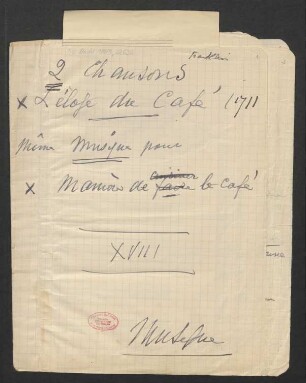 2 Chansons
x L'éloge du Café 1711
Même Musique pour
x Manière de faire le café
XVIII
Musique